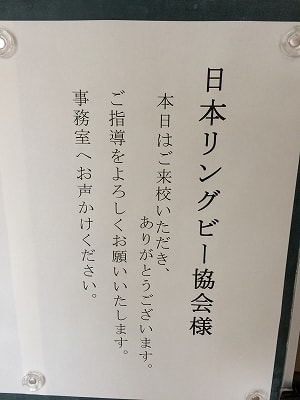 日本リングビー協会様
本日はご来校いただき、
ありがとうございます。
ご指導をよろしくお願いいたします。
事務室へお声かけください。